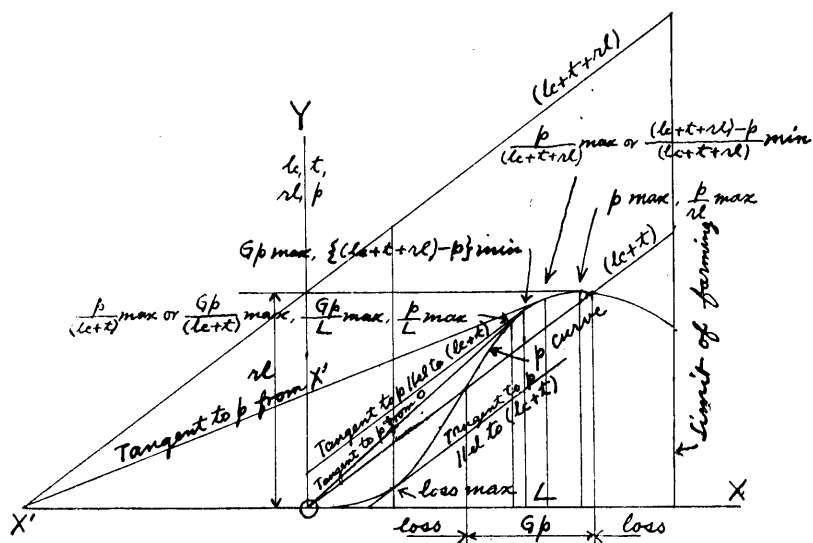 (lc+t+rl)
Y
lc, t,
rl, p
p/(lc+t+rl) max or ((lc+t+rl)-p)/(lc+t+rl) min
p max, p/rl max
Gp max, {(lc+t+rl)-p} min
(lc+t)
p/(lc+t) max or Gp/(lc+t) max, Gp/L max, p/L max
p curve
rl
Tangent to p from X'
Tangent to p ||el to (lc+t)
Tangent to p from O
Tangent to p
||el to (lc+t)
Limit of farming
loss max
L
X
X'
loss
Gp
loss